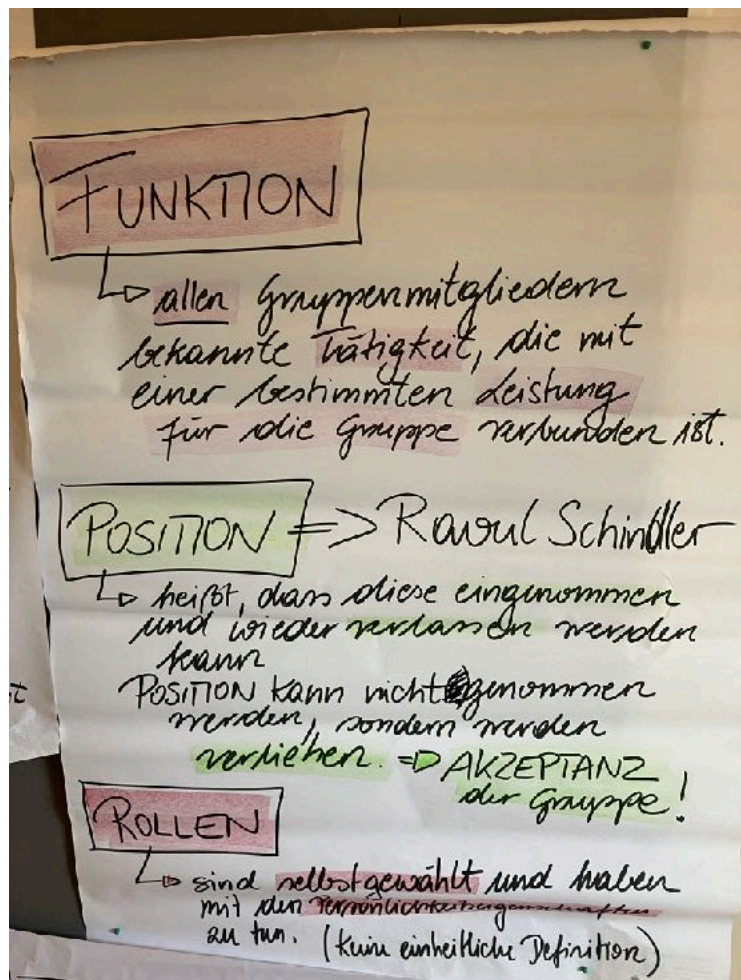 FUNKTION
allen Gruppenmitgliedern
bekannte Tätigkeit, die mit
einer bestimmten Leistung
für die Gruppe verbunden ist.
POSITION => Raoul Schindler
heißt, dass diese eingenommen
und wieder verlassen werden
kann
POSITION kann nicht genommen
werden, sondern werden
verliehen. => AKZEPTANZ
der Gruppe!
ROLLEN
sind selbstgewählt und haben
mit den Persönlichkeitseigenschaften
zu tun. (Keine einheitliche Definition)